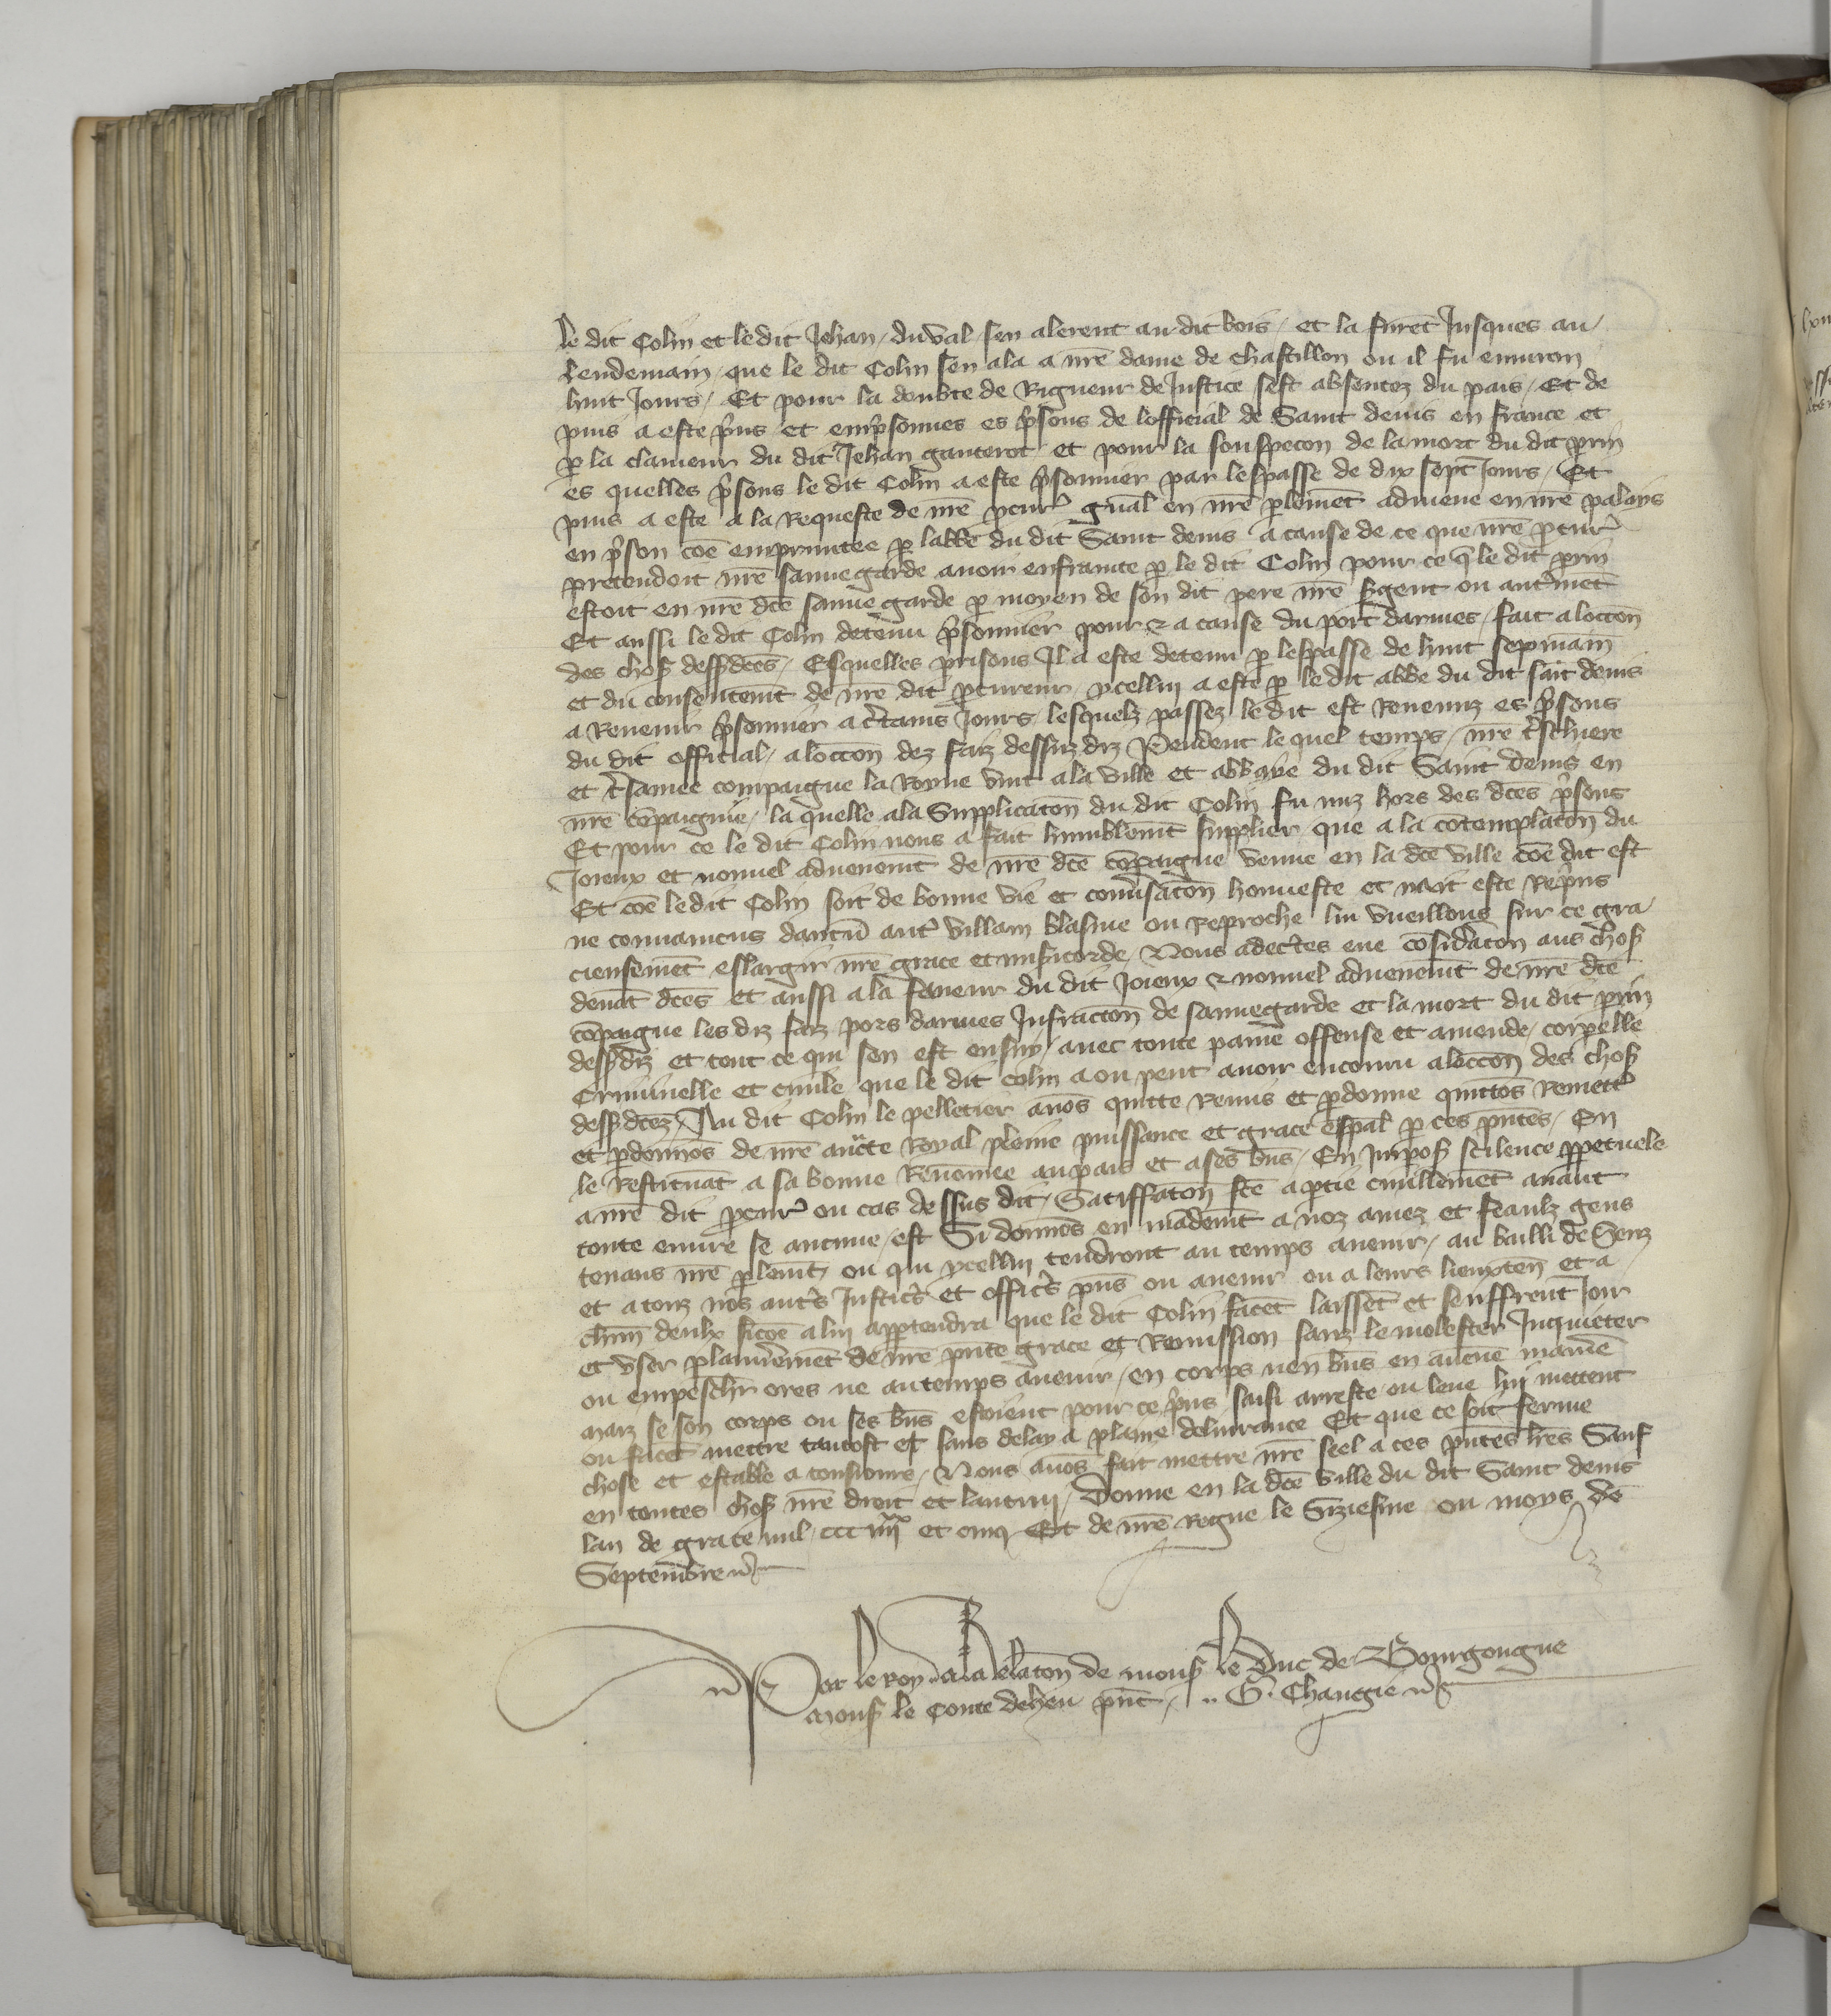 le dit Colin et le dit Jehan duval sen alerent au dit bois / et la furēt Jusques au
lendemain / que le dit Colin sen ala a nr̄e dame de chastillon ou il fu enuiron
huit Jours / Et pour la doubte de Rigueur de Justice sest absentez du pais / Et de
puis a este pͥns et empͥsonnes es pͥsons de lofficial de Saint denis en france et
ꝑ la clameur du dit Jehan gauterot et pour la souspecon de la mort du dit ꝑrin
es quelles pͥsons le dit Colin a este pͥsonnier par lespasse de dix sept Jours / Et
puis a este a la Requeste de nr̄e ꝓcurͬ gn̄al en nr̄e ꝑlemēt admene en nr̄e palays
en pͥson cōe empruntee ꝑ labbe du dit Saint denis a cause de ce que nr̄e ꝓcurͬ
pretendoit nr̄e sauuegarde auoir enfrainte ꝑ le dit Colin pour ce q̄ le dit ꝑrin
estoit en nr̄e dc̄e sauuegarde ꝑ moyen de son dit pere nr̄e sᵉgent ou autᵉmēt
Et aussi le dit Colin detenu pͥsonnier pour & a cause du port darmes / fait a loccōn
des choses dessdc̄es / Esquelles prisons Il a este detenu ꝑ lespasse de huit sepmain̄
et du consentemt̄ de nr̄e dit ꝓcureur / ycellui a este ꝑ le dit abbe du dit sāit denis
a Reuenir pͥsonnier a cᵉtains Jours / lesquelz passez le dit est Reuenuz es pͥsons
du dit official / a loccōn dez faiz dessuz diz Pendent le quel temps / nr̄e tᵉschiere
et tᵉsamee compaigne la Royne vint a la ville et abbaye du dit Saint denis en
nr̄e cōpaignie / la quelle a la Supplicatōn du dit Colin fu miz hors des dc̄es pͥsons
Et pour ce le dit Colin nous a fait humblemt̄ supplier / que a la cōtemplatōn du
Joieux et nouuel aduenemt̄ de nr̄e dc̄e cōpaigne venue en la dc̄e ville cōe dit est
Et cōe le dit Colin soit de bonne vie et conuᵉsatōn honneste et nait este Repͥns
ne conuaincus daucū autͤ villain blasme ou Reproche lui vueillons sur ce gra
cieusemēt eslargir nr̄e grace et misᵉicorde / Nous adecᵉtes eue cōsidᵉatōn aus choses
deuāt dc̄es et aussi a la faueur du dit Joieux & nouuel aduenemt̄ de nr̄e dc̄e
cōpaigne les diz faiz pors darmes Infractōn de sauuegarde et la mort du dit ꝑrin
dessdiz et tout ce qui sen est ensuy / auec toute paine offense et amende / corꝑelle
Criminelle et ciuile que le dit colin a ou peut auoir encouru a loccōn des choses
dessdc̄ez / Au dit Colin le pelletier auōs quitte Remis et ꝑdonne quittōs Remettͦs
et ꝑdonnōs de nr̄e aucᵗe Royal pleine puissance et grace esp̄al ꝑ ces pn̄tes / En
le Restituāt a sa bonne Renōmee au pais et a ses biēs / En Imposāt scilence ꝑpetuele
a nr̄e dit ꝓcurͬ ou cas dessus dit / Satiffatōn fc̄e a ꝑtie ciuillemēt auant
toute euure se aucune / est Si donnōs en mādemt̄ a noz amez et feaulz gens
tenans nr̄e ꝑlemt̄ / ou qui ycellui tendront au temps auenir / au bailli de Senz
et a touz nos autᵉs Justicᵉs et officᵉs pn̄s ou auenir ou a leurs lieuxten̄ et a
chun̄ deulx sicōe a lui apꝑtendra que le dit Colin facēt laissēt et seuffrent Joir
et vser plainᵉement de nr̄e pn̄te grace et Remission sanz le molester Inquieter
ou empeschr̄ ores ne au temps auenir / en corps nen biēs en aucūe maniē
maiz se son corps ou ses biēs estoient pour ce pͥns saisi arreste ou leue lui mettent
ou facēt mettre tantost et sans delay a plaine deliurance Et que ce soit ferme
chose et estable a tousiours / Nous auōs fait mettre nr̄e seel a ces pn̄tes lr̄es Sauf
en toutes choses nr̄e droit et lautrui / Donne en la dc̄e ville du dit Saint denis
lan de grace mil ccc iiijˣˣ et cinq Et de nr̄e Regne le Siziesme ou moys de
Septembre
Par le Roy a la Relatōn de mons le Duc de Bourgongne
mons le Conte deheu pn̄t / .. G. Chaugie